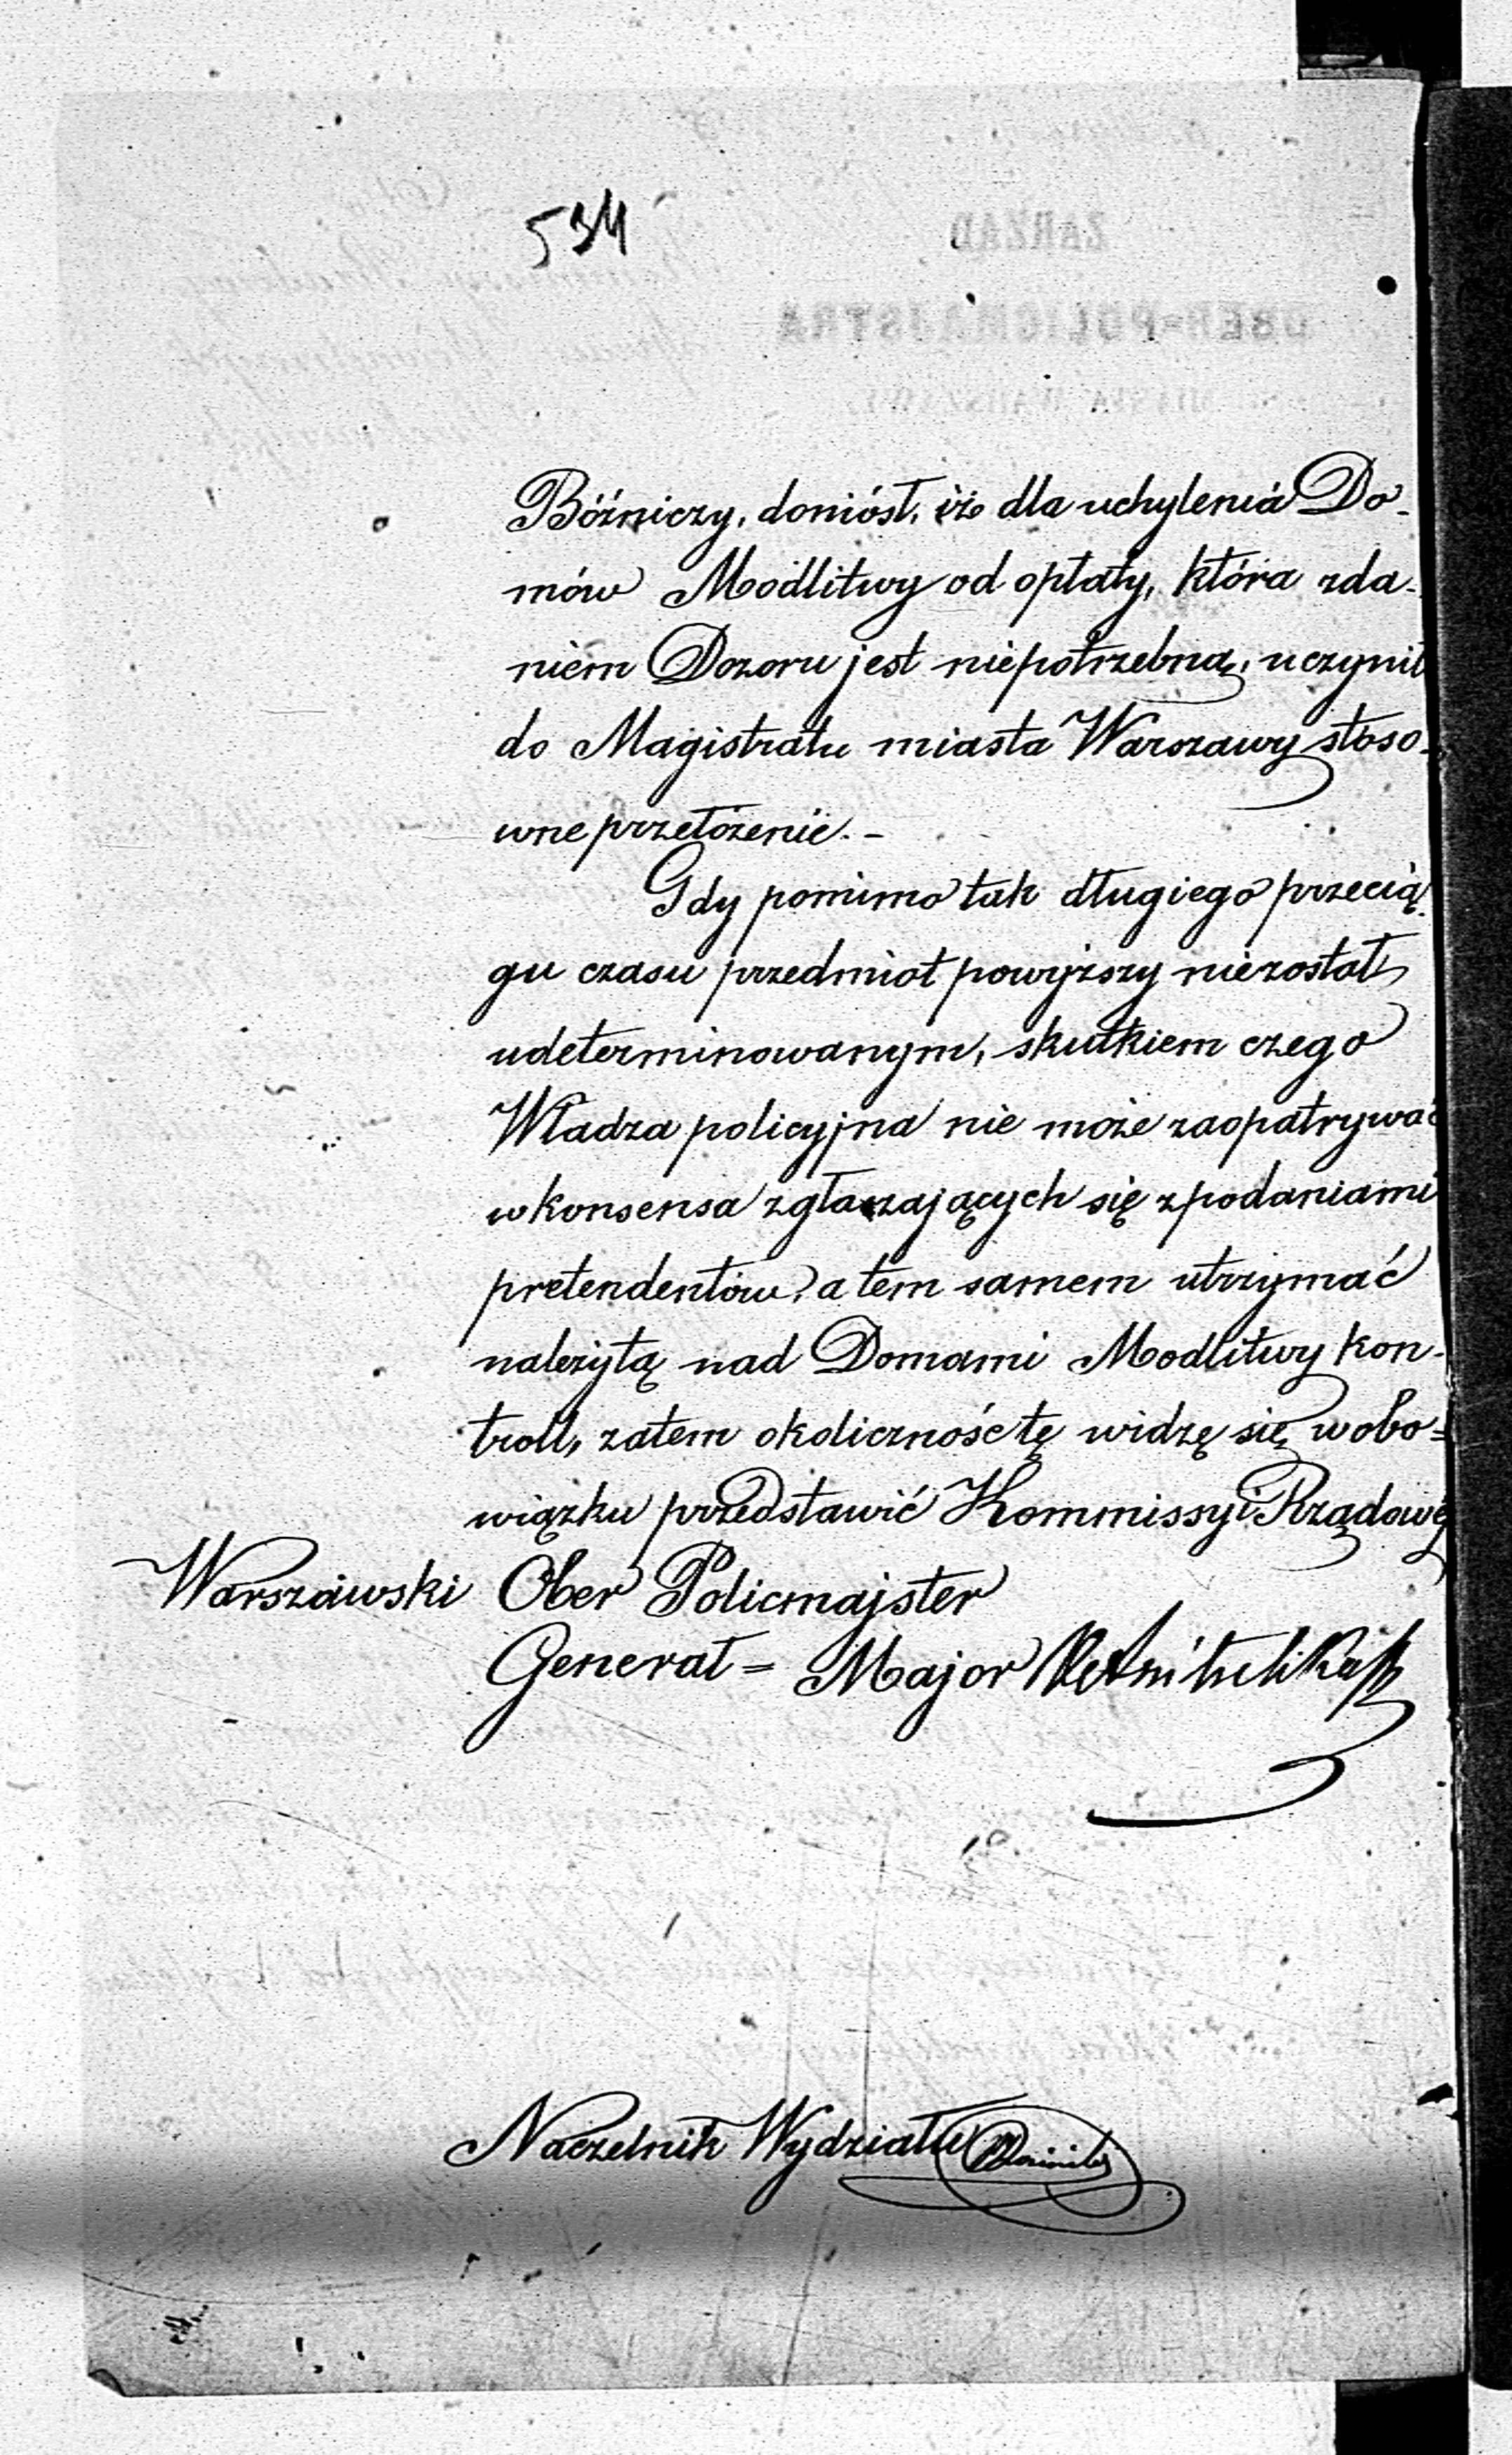 534
Bóźniczy, doniósł, iż dla uchylenia Do-
mów Modlitwy od opłaty, która zda-
niem Dozoru jest niepotrzebną, uczynił
do Magistratu miasta Warszawy stoso-
wne przełożenie. -
Gdy pomimo tak długiego przecią-
gu czasu przedmiot powyższy niezostał
udeterminowanym, skutkiem czego
Władza policyjna nie może zaopatrywać
w konsensa zgłaszających się z podaniami
pretendentów, a tem samem utrzymać
należytą nad Domami Modlitwy kon-
troll, zatem okoliczność tę widzę się w obo=
wiązku przedstawić Kommissyi Rządowej
Warszawski Ober Policmajster
Generał = Major
Naczelnik Wydziału